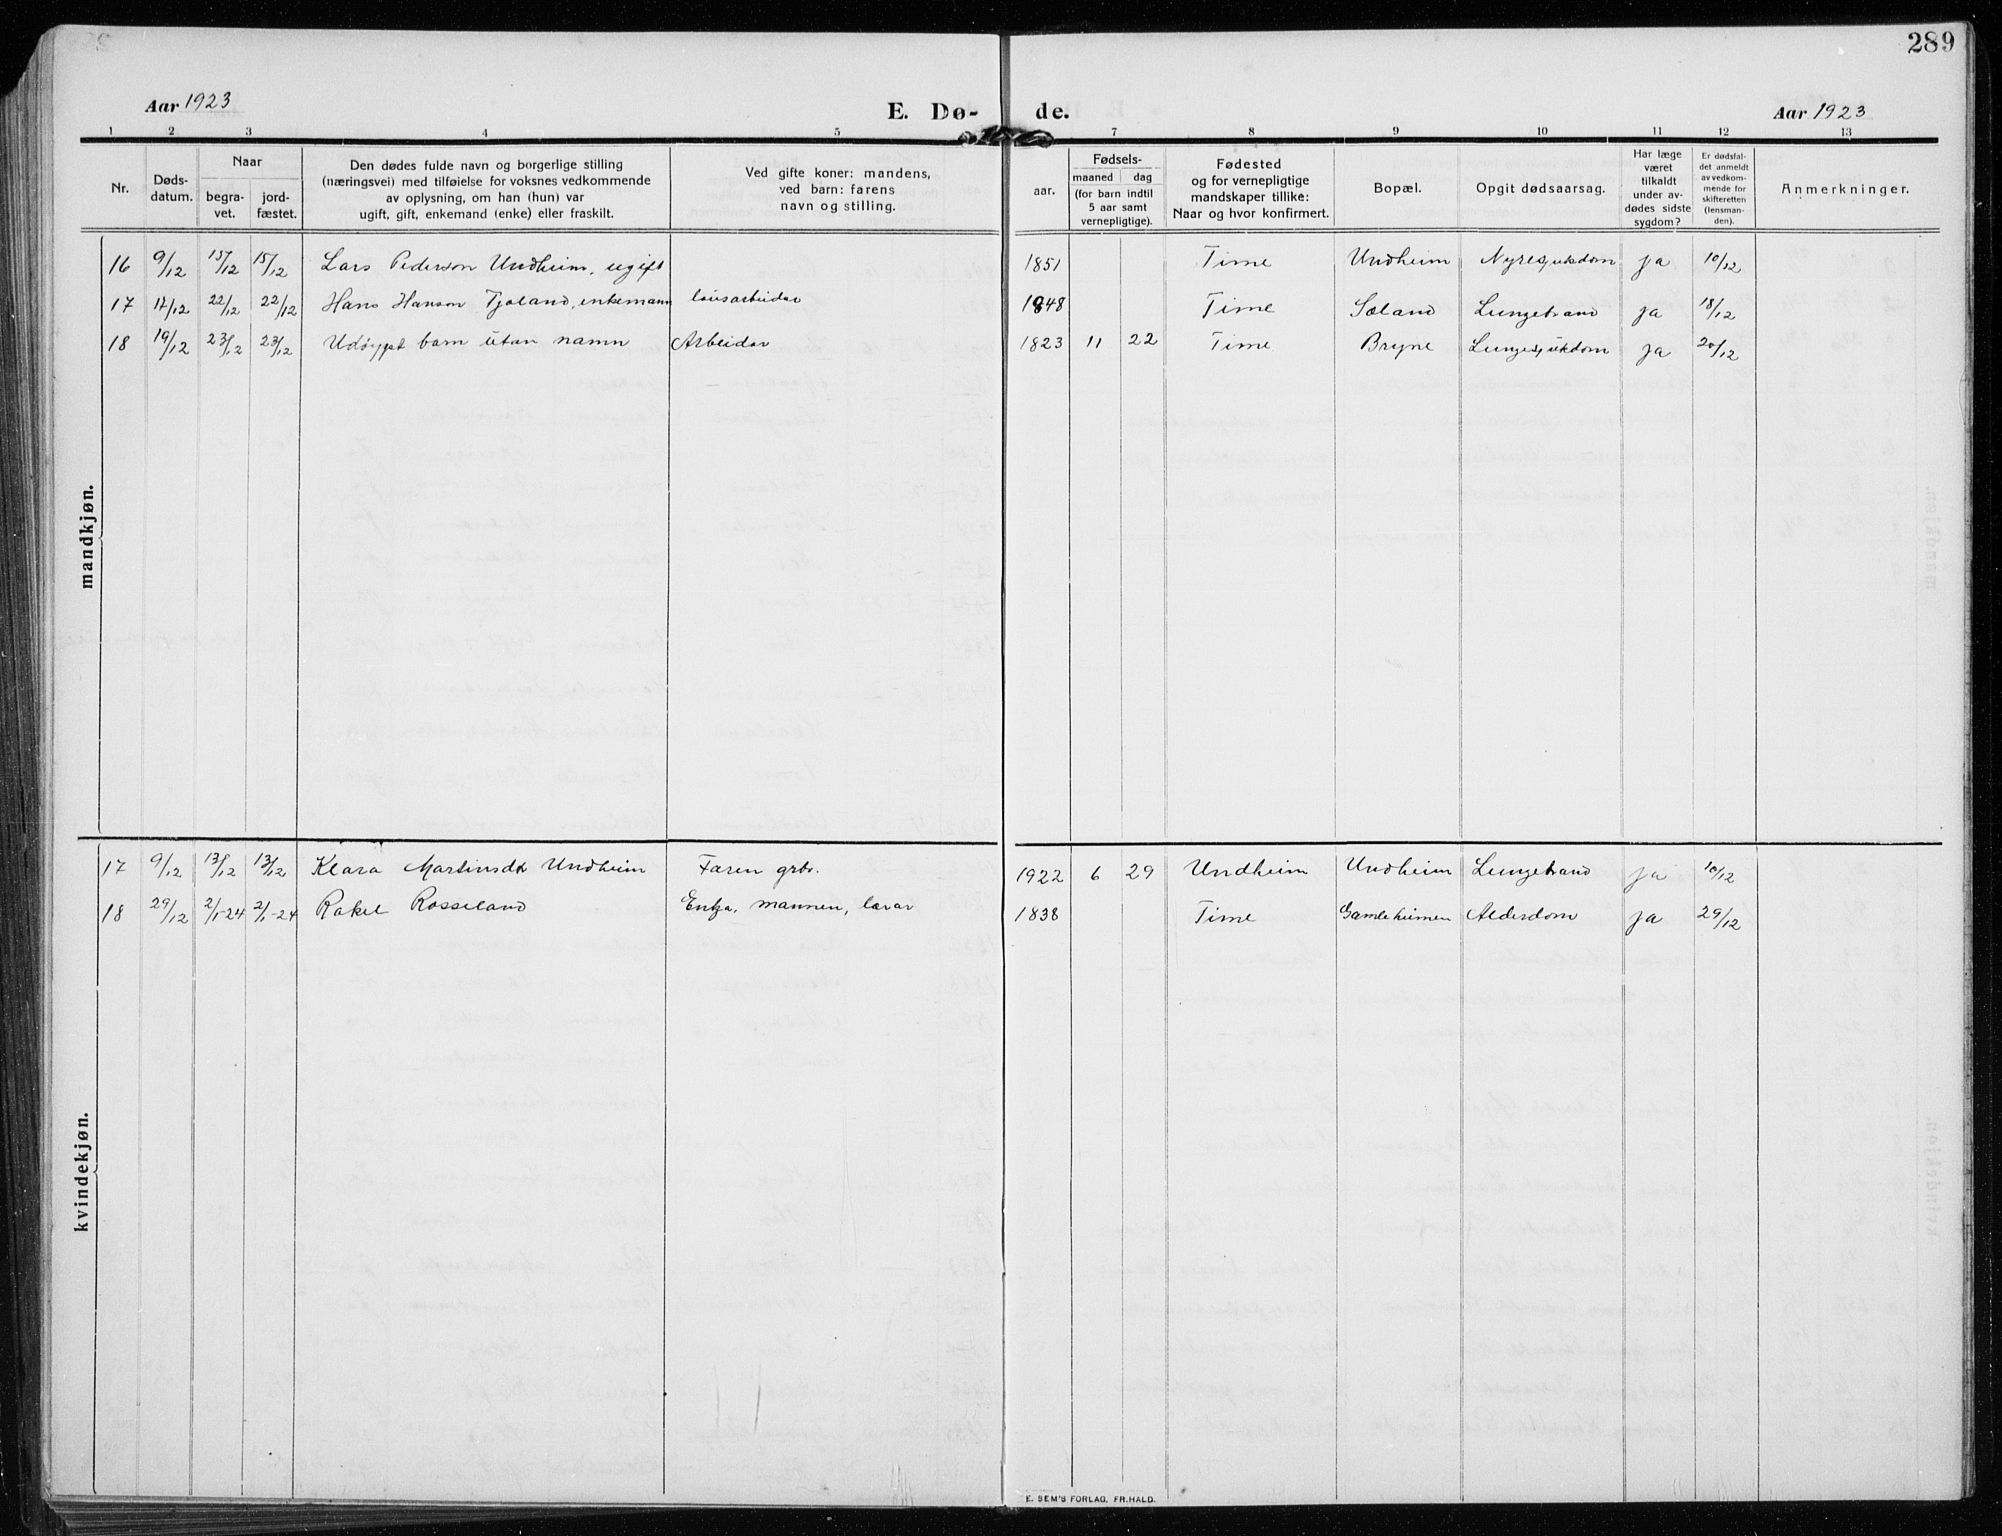 289
Aar 1923 E. Dø- de. Aar 1923
1 2 3 4 5 7 8 9 10 11 12 13
Nr.
Døds-
datum.
Naar
begra-
vet.
jord-
fæstet.
Den dødes fulde navn og borgerlige stilling
(næringsvei) med tilføielse for voksnes vedkommende
av oplysning, om han (hun) var
ugift, gift, enkemand (enke) eller fraskilt.
Ved gifte koner: mandens,
ved barn: farens
navn og stilling.
Fødsels-
aar.
maaned dag
(for barn indtil
5 aar samt
vernepligtige).
Fødested
og for vernepligtige
mandskaper tillike:
Naar og hvor konfirmert.
Bopæl.
Opgit dødsaarsag.
Har læge
været
tilkaldt
under av-
dødes sidste
sygdom?
Er dødsfal-
det anmeldt
av vedkom-
mende for
skifteretten
(lensman-
den).
Anmerkninger.
mandkjøn.
16 9/12 15/12 15/12 Lars Pederson Undheim, ugift 1851 Time Undheim Nyresjukdom ja 10/12
17 17/12 22/12 22/12 Hans Hanson Tjøland, enkemann lausarbeidar 1848 Time Sæland Lungebrand ja 18/12
18 19/12 23/12 23/12 Udøypt barn utan namn Arbeidar 1823 11 22 Time Bryne Lungesjukdom ja 20/12
kvindekjøn.
17 9/12 13/12 13/12 Klara Martinsdtr Undheim Faren grbr. 1922 6 29 Undheim Undheim Lungebrand ja 10/12
18 29/12 2/1-24 2/1-24 Rakel Rosseland Enkja, mannen, lærar 1838 Time Gamleheimen Alderdom ja 29/12
E. SEM'S FORLAG, FR.HALD.